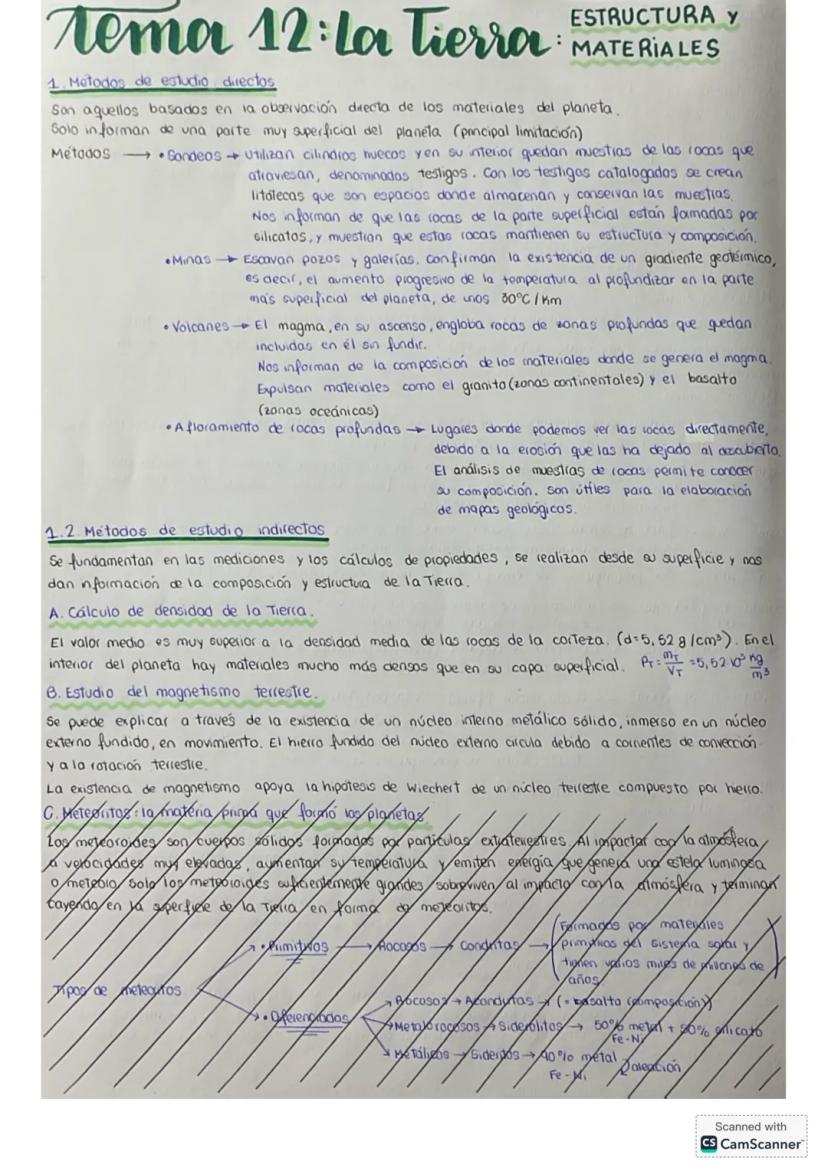 Tema 12: La Tierra: ESTRUCTURA y
MATERIALES
1. Metodos de estudio directos
Son aquellos basados en la observación directa de los materiales del planeta.
Solo informan de una parte muy superficial del planeta (principal limitación)
Métodos → • Sondeos → Utilizan cilindros huecos y en su interior quedan muestras de las rocas que
atraviesan, denominadas testigos. Con los testigos catalogados se crean
litotecas que son espacios donde almacenan y conservan las muestras.
Nos informan de que las rocas de la parte superficial están formadas por
silicatos, y muestran que estas rocas mantienen su estructura y composición.
• Minas → Escavan pozos y galerías, confirman la existencia de un gradiente geotérmico,
es decir, el aumento progresivo de la temperatura al profundizar en la parte
más superficial del planeta, de unos 30°C/Km
• Volcanes → El magma, en su ascenso, engloba rocas de zonas profundas que quedan
incluidas en él sin fundir.
Nos informan de la composición de los materiales donde se genera el magma.
Expulsan materiales como el granito (zonas continentales) y el basalto
(zonas oceánicas)
• Afloramiento de rocas profundas → Lugares donde podemos ver las rocas directamente,
debido a la erosión que las ha dejado al
El análisis de muestras de rocas permite conocer
su composición. Son útiles para la elaboración
de mapas geológicos.
1.2. Métodos de estudio indirectos
Se fundamentan en las mediciones y los cálculos de propiedades, se realizan desde su superficie y nos
dan información de la composición y estructura de la Tierra.
A. Cálculo de densidad de la Tierra.
El valor medio es muy superior a la densidad media de las rocas de la corteza. (d=5,52 g/cm³). En el
interior del planeta hay materiales mucho más densos que en su capa superficial. ρT = mT/VT = 5,52·10³ kg/m³
B. Estudio del magnetismo terrestre.
Se puede explicar a través de la existencia de un núcleo interno metálico sólido, inmerso en un núcleo
externo fundido, en movimiento. El hierro fundido del núcleo externo circula debido a corrientes de convección
y a la rotación terrestre.
La existencia de magnetismo apoya la hipótesis de Wiechert de un núcleo terrestre compuesto por hierro.
C. Meteoritos: la materia prima que formó los planetas
Los meteoroides son cuerpos sólidos formados por partículas extraterrestres. Al impactar con la atmósfera,
a velocidades muy elevadas, aumentan su temperatura y emiten energía que genera una estela luminosa
o meteoro. Solo los meteoroides suficientemente grandes sobreviven al impacto con la atmósfera y terminan
cayendo en la superficie de la Tierra en forma de meteoritos.
Tipos de meteoritos
• Primitivos → Rocosos → Condritas → (Formados por materiales
primitivos del sistema solar y
tienen varios miles de millones de
años)
• Diferenciados
→ Rocosos → Acondritas → (= basalto (composición))
→ Metalorocosos → Siderolitos → 50% metal + 50% silicato
Fe-Ni
→ Metálicos → Sideritos → 90% metal aleación
Fe-Ni
Scanned with
CS CamScanner